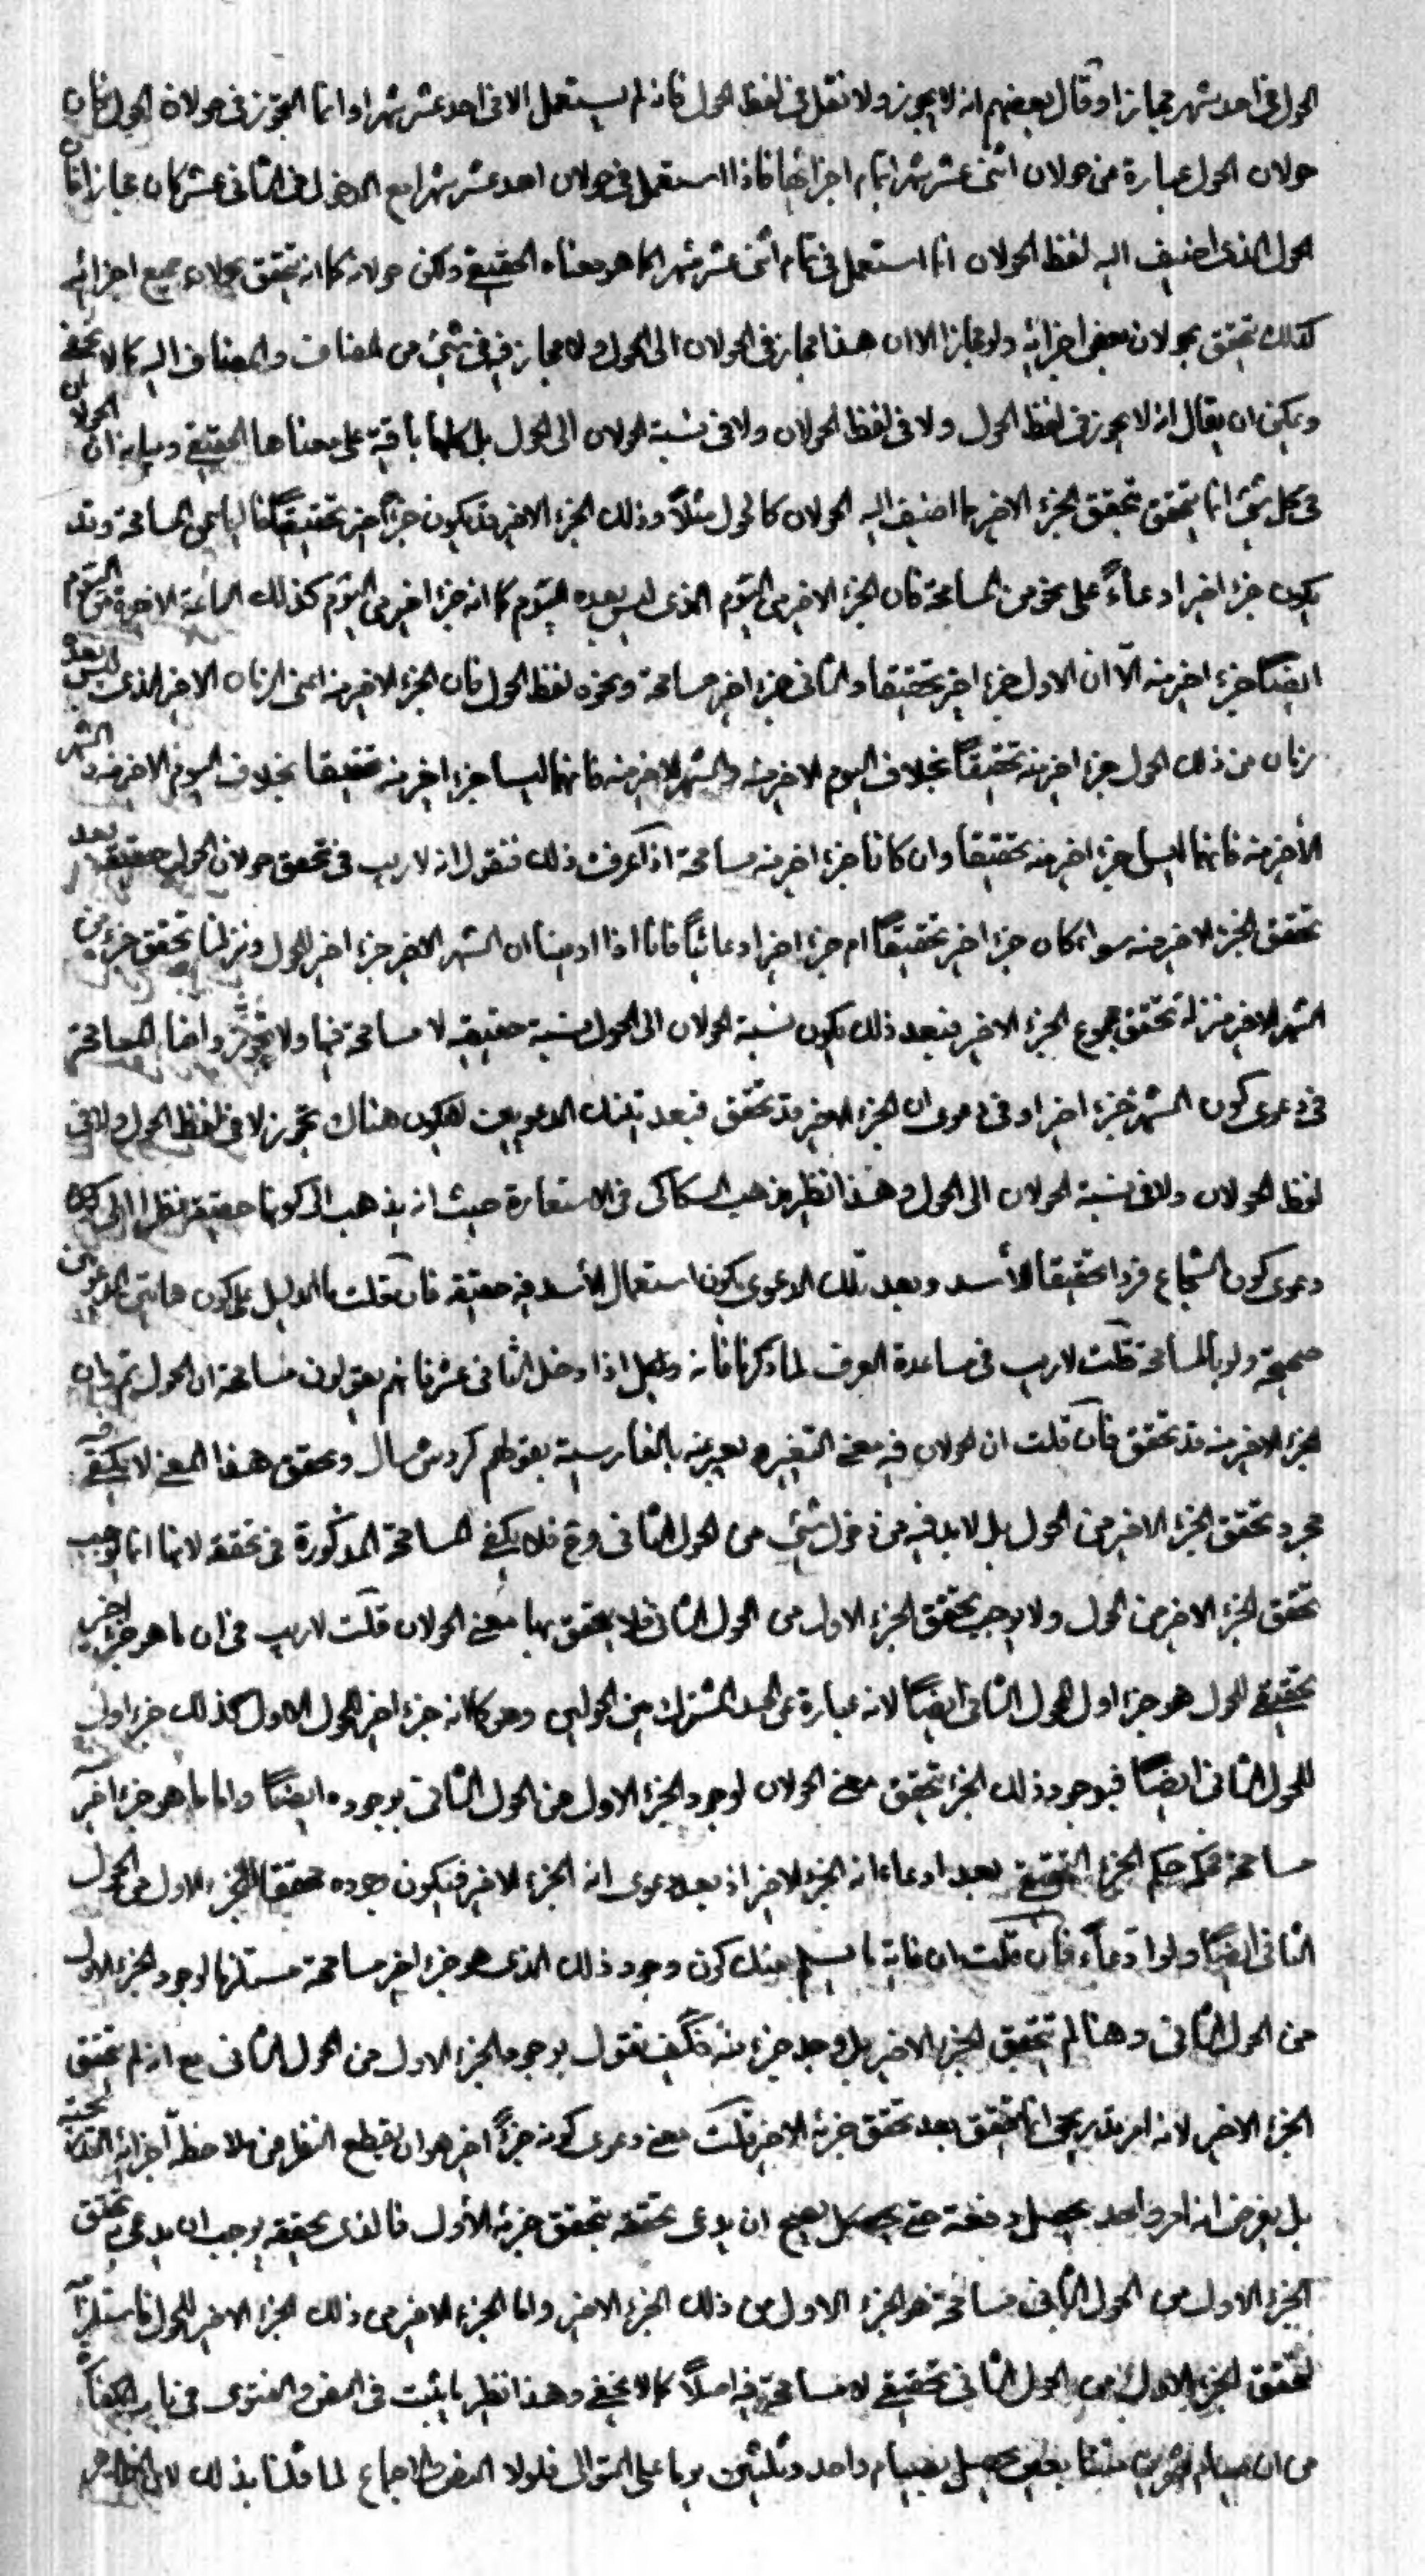 الحول في احد عشر شهر مجازا وقال بعضهم انه لا يجوز ولا نقل في لفظ الحول فانه لم يستعمل الا في احد عشر شهرا وانما التجوز في حولان الحول فان
حولان الحول عبارة من حولان اثنى عشر شهرا بتمام اجزائها فاذا استعمل في حولان احد عشر شهرا مع الدخول في الثاني عشر كان مجازا فان
الحول الذي اضيف اليه لفظ الحولان انما استعمل في تمام اثنى عشر شهرا كما هو معناه الحقيقي ولكن حولانه كما انه يتحقق بحولان جميع اجزائه
كذلك يتحقق بحولان بعض اجزائه ولو مجازا الا ان هذا مجاز في الحولان الى الحول ولا مجاز فيه في شيء من المضاف والمضاف اليه كما لا يخفى
ويمكن ان يقال انه لا تجوز في لفظ الحول ولا في لفظ الحولان ولا في نسبة الحولان الى الحول بل كلها باقية على معناها الحقيقي وبيانه ان الحولان
في كل شيء انما يتحقق بتحقق الجزء الاخير مما اضيف اليه الحولان كالحول مثلاً وذلك الجزء الاخير قد يكون جزءاً اخير تحقيقاً خاليا عن المسامحة وقد
يكون جزء اخيرا ادعاءً على نحو من المسامحة فان الجزء الاخير من اليوم الذي ليس بعده اليوم كما انه جزء اخير من اليوم كذلك الساعة الاخيرة من اليوم
ايضاً جزء اخير منه الّا ان الاول جزء اخير تحقيقا والثاني جزء اخير مسامحة ونحوه لفظ الحول فان الجزء الاخير منه اعني الزمان الاخير الذي ليس بعده
زمان من ذلك الحول جزء اخير منه تحقيقاً بخلاف اليوم الاخير منه والشهر الاخير منه فانهما ليسا جزء اخير منه تحقيقا بخلاف اليوم الاخير منه والشهر
الأخير منه فانهما ليسا جزء اخير منه تحقيقا وان كانا جزء اخير منه مسامحة اذا عرفت ذلك فنقول انه لا ريب في تحقق حولان الحول حقيقة بعد
تحقق الجزء الاخير منه سواء كان جزء اخير تحقيقاً ام جزء اخيرا ادعائياً فانا اذا ادعينا ان الشهر الاخير جزء اخير للحول ونزلنا تحقق جزء من
الشهر الاخير منزلة تحقق مجموع الجزء الاخير فبعد ذلك يكون نسبة الحولان الى الحول نسبة حقيقية لا مسامحة فيها ولا تجوز وانما المسامحة
في دعوى كون الشهر جزء اخيرا وفي دعوى ان الجزء الاخير قد تحقق فبعد تينك الدعويين لا يكون هناك تجوز لا في لفظ الحول ولا في
لفظ الحولان ولا في نسبة الحولان الى الحول وهذا نظير مذهب السكاكي في الاستعارة حيث انه يذهب الى كونها حقيقة نظرا الى
دعوى كون الشجاع فردا تحقيقا للأسد وبعد تلك الدعوى يكون استعمال الأسد فيه حقيقة فان قلت ما الدليل على كون هاتين الدعويين
صحيحة ولو بالمسامحة قلت لا ريب في مساعدة العرف لما ذكرنا فانه اذا دخل الثاني عشر فانهم يقولون مسامحة ان الحول تم وان
الجزء الاخير منه قد تحقق فان قلت ان الحولان فيه معنى التغير ويعبر عنه بالفارسية بقولهم كردش سال وتحقق هذا المعنى لا يكفي فيه
مجرد تحقق الجزء الاخير من الحول بل لا بد فيه من دخول شيء من الحول الثاني وح فلا يكفي المسامحة المذكورة في تحققه لانها انما توجب
تحقق الجزء الاخير من الحول ولا يوجب تحقق الجزء الاول من الحول الثاني فلا يتحقق بها معنى الحولان قلت لا ريب في ان ما هو جزء اخير
تحقيقي للحول هو جزء اول للحول الثاني ايضاً لانه عبارة عن الحد المشترك بين الحولين وهو كما انه جزء اخير للحول الاول كذلك جزء اول
للحول الثاني ايضاً فبوجود ذلك الجزء يتحقق معنى الحولان لوجود الجزء الاول من الحول الثاني بوجوده ايضاً واما ما هو جزء اخر
مسامحة فحكمه حكم الجزء الحقيقي بعد ادعاء انه الجزء الاخير اذ بعد دعوى انه الجزء الاخير فيكون وجوده محققا للجزء الاول من الحول
الثاني ايضاً ولو ادعاءً فان قلت ان غاية ما نسلم منك كون وجود ذلك الذي هو جزء اخير مسامحة مستلزما لوجود الجزء الاول
من الحول الثاني وهنا لم يتحقق الجزء الاخير بل وجد جزء منه فكيف نقول بوجود الجزء الاول من الحول الثاني مع انه لم يتحقق
الجزء الاخير لانه امر تدريجي انما يتحقق بعد تحقق جزئه الاخير قلت معنى دعوى كونه جزءاً اخر هو ان يقطع النظر من ملاحظة اجزائه
بل يفرض انه امر واحد يحصل دفعة حتى يصح ان يدعى تحققه بتحقق جزئه الأول فالذي تحققه يوجب ان يدعى تحقق
الجزء الاول من الحول الثاني مسامحة هو الجزء الاول من ذلك الجزء الاخير واما الجزء الاخير من ذلك الجزء الاخير للحول فاستلزامه
لتحقق الجزء الاول من الحول الثاني تحقيقي لا مسامحة فيه اصلاً كما لا يخفى وهذا نظير ما يثبت في النص والفتوى في باب الكفارة
من ان صيام شهرين متتابعين يحصل بصيام واحد وثلثين يوما على التوالي فلولا النص والاجماع لما قلنا بذلك لان الظاهر